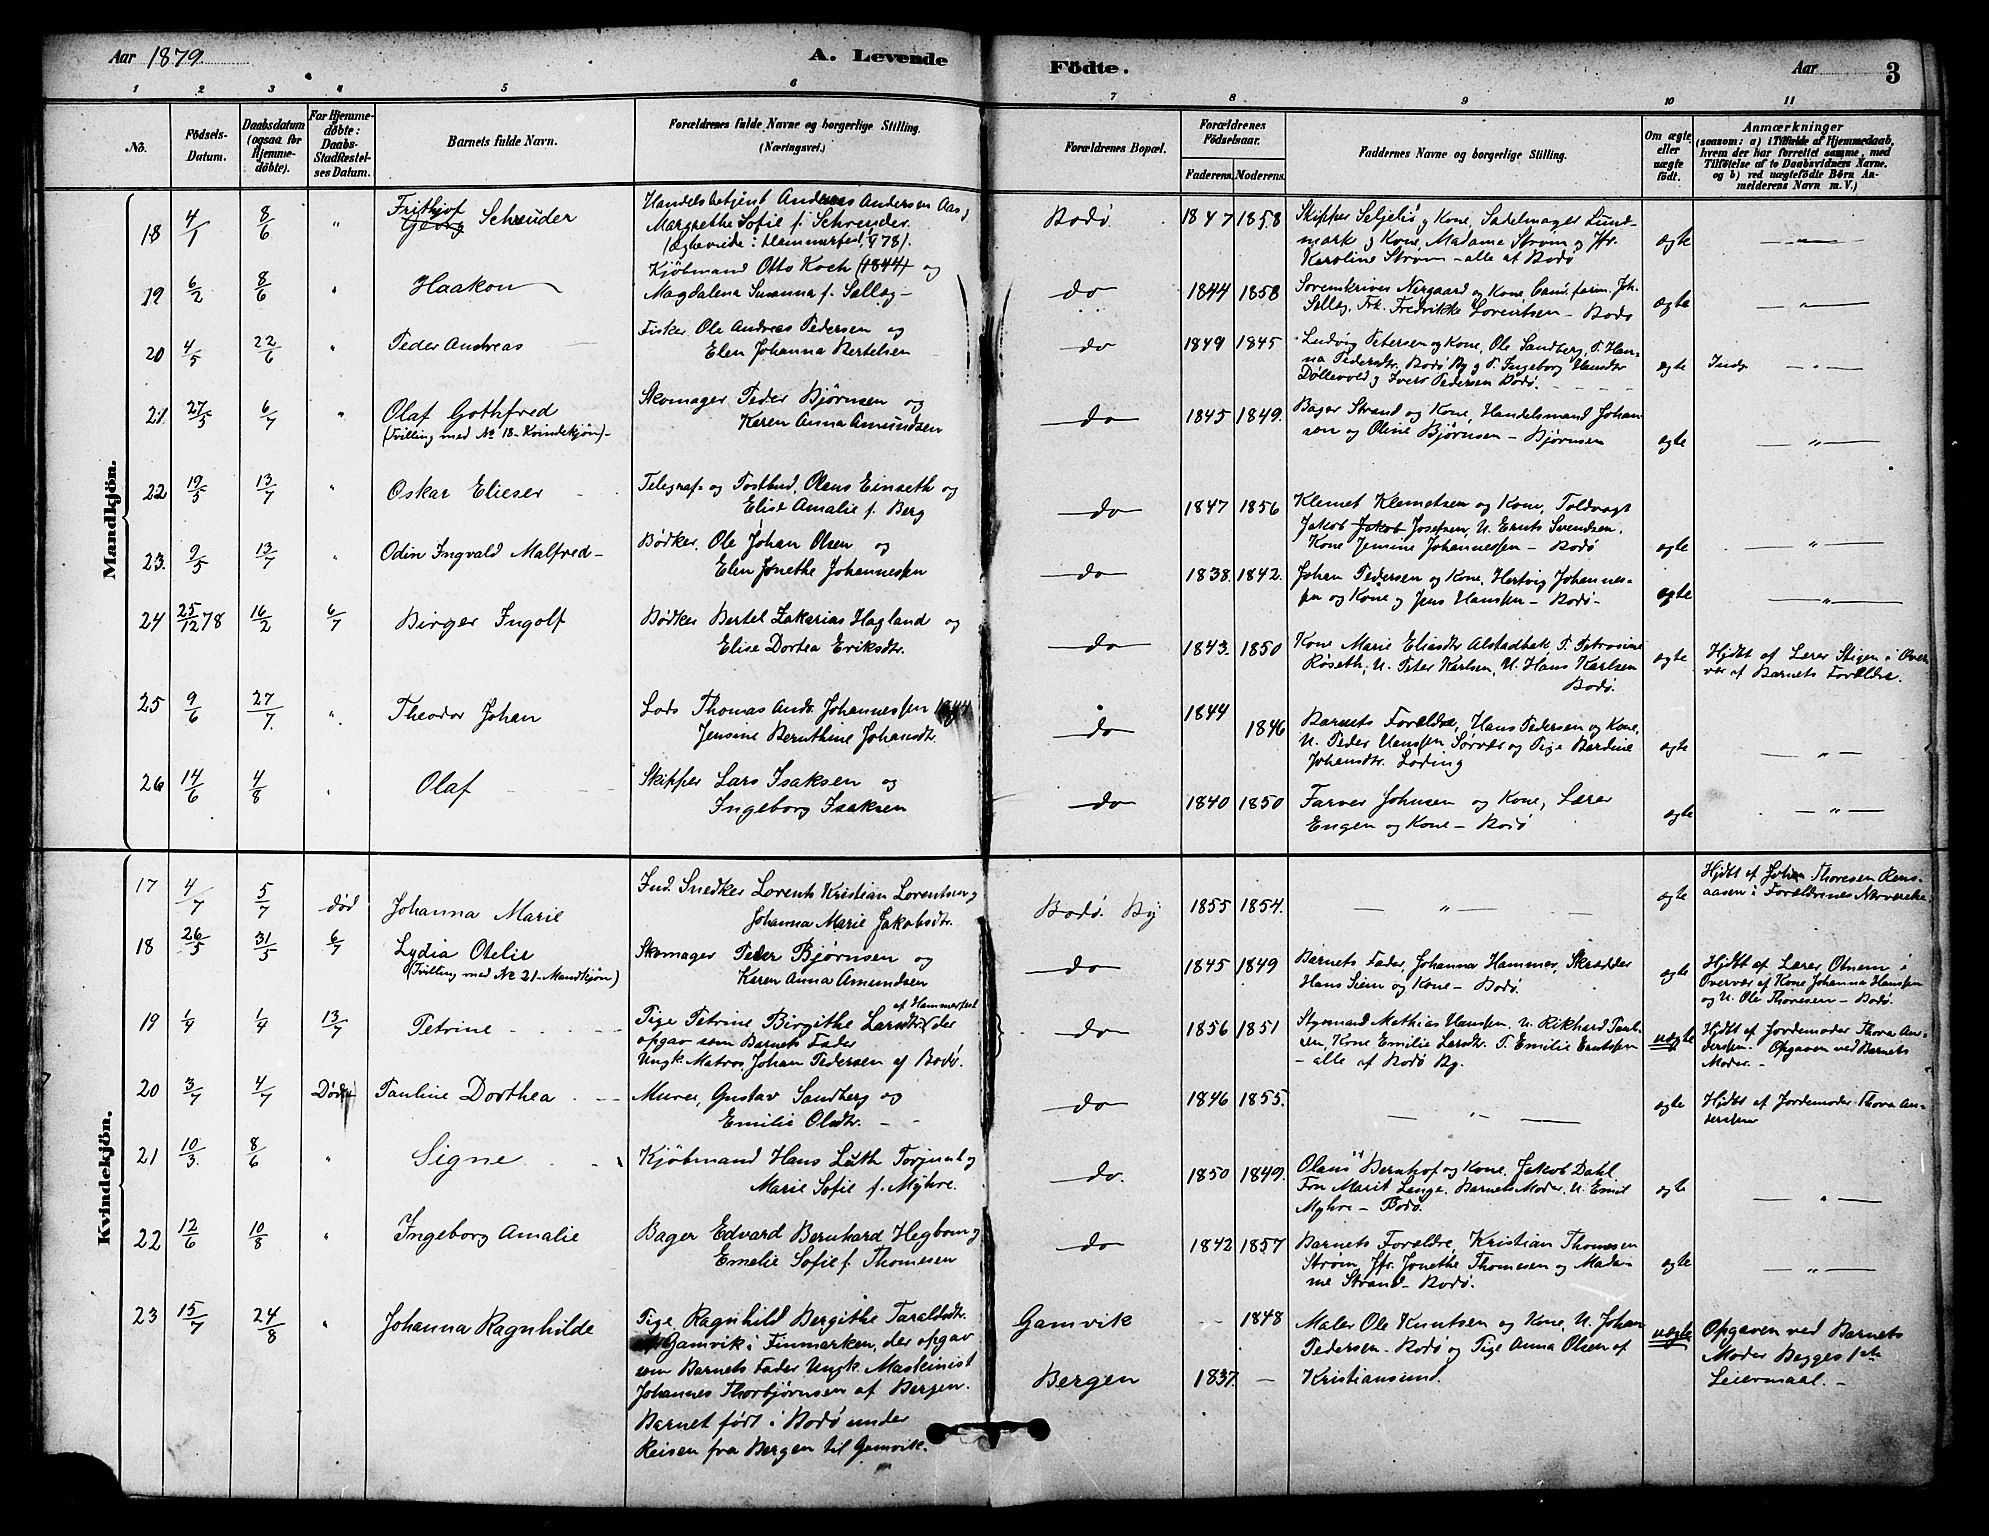 Aar 1879.
A. Levende
Födte.
Aar
3
1 2 3 4 5 6 7 8 9 10 11
No.
Födsels-
Datum.
Daabsdatum
(ogsaa for
Hjemme-
döbte).
For Hjemme-
döbte:
Daabs-
Stadfæstel-
ses Datum.
Barnets fulde Navn.
Forældrenes fulde Navne og borgerlige Stilling.
(Næringsvei.)
Forældrenes Bopæl.
Forældrenes
Födselsaar.
Faderens. Moderens.
Faddernes Navne og borgerlige Stilling.
Om ægte
eller
uægte
født.
Anmærkninger
(saasom: a) i Tilfælde af Hjemmedaab,
hvem der har forrettet samme, med
Tilföielse af to Daabsvidners Navne,
og b) ved uægtefödte Börn An-
melderens Navn m. V.)
Mandkjön.
18 4/1 8/6 "
Frithjof
Georg Schrøder
Handelsbetjent Andreas Andersen Aas,
Margrethe Sofie f. Schrøder.
(Egteviede: Hammerfest, 78).
Bodø. 1847 1858
Skipper Seljeliö og Kone, Sadelmager Lund-
mark og Kone, Madame Strøm og Jfr.
Karoline Strøm - alle af Bodø
ægte — " —
19 6/2 8/6 " Haakon
Kjöbmand Otto Koch (1844) og
Magdalena Susanna f. Selleg -
do 1844 1858
Sorenskriver Nergaard og Kone, Cand. farm. Joh.
Selleg, Frk. Fredrikke Lorentsen - Bodø
ægte — " —
20 4/5 22/6 " Peder Andreas
Fisker Ole Andreas Pedersen og
Elen Johanna Bertelsen
do 1849 1845
Ludvig Petersen og Kone, Ole Sandberg, P. Han-
na Pedersdtr. Bodø By og P. Ingeborg Hansdtr
Döllevold og Iver Pedersen Bodø.
ægte Inds — " —
21 27/5 6/7 " Olaf Gothfred
(Tvilling med No 18 - Kvindekjön) -
Skomager Peder Bjørnsen og
Karen Anna Amundsen
do 1845 1849.
Bager Strand og Kone, Handelsmand Johan-
sen og Oline Bjørnsen - Bjørnsen
ægte — " —
22 19/5 13/7 " Oskar Elieser
Telegraf- og Postbud, Olaus Einseth og
Elise Amalie f. Berg
do 1847 1856
Klemet Klemetsen og Kone, Toldvagt
Jakob Jakob Josefsen, U. Ernts Svendsen.
Kone Jensine Johannessen - Bodø
ægte — " —
23. 9/5 13/7 " Odin Ingvald Malfred -
Bødker, Ole Johan Olsen og
Elen Jonethe Johannessen
do 1838. 1842.
Johan Pedersen og Kone, Hertvig Johannes-
sen og Kone og Jens Hanssen - Bodø -
ægte — " —
24 25/12 78 16/2 6/7 Birger Ingolf
Bødker Bertel Zakarias Hagland og
Elise Dortea Eriksdtr.
do 1843. 1850
Kone Marie Eliasdtr Alstadbak, P. Petrosine
Røseth, U. Peter Karlsen, U. Hans Karlsen
Bodø.
ægte
Hjdbt af Lærer Stigen i Over-
vær af Barnets Forældre.
25 9/6 27/7. " Theodor Johan
Lods Thomas Andr. Johannessen 1844
Jensine Bernthine Johansdtr.
do 1844 1846
Barnets Forældre, Hans Pedersen og Kone,
U. Peder Hanssen Sørvær og Pige Berdine
Johansdtr. Løding
ægte — " —
26 14/6 4/8 " Olaf
Skipper Lars Isaksen og
Ingeborg Isaksen
do 1840 1850
Farver Johnsen og Kone, Lærer
Engen og Kone - Bodø
ægte — " —
Kvindekjön.
17 4/7 5/7 død Johanna Marie
Ind. Snedker Lorents Kristian Lorentsen og
Johanna Marie Jakobsdtr.
Bodø. By 1855 1854. — " —
ægte
Hjdbt af Johan Thoresen Rens-
aasen i Forældrenes Nærværelse.
18 26/5 31/5 6/7 Lydia Otelie
(Tvilling med No 21 - Mandkjøn)
Skomager Peder Bjørnsen og
Karen Anna Amundsen
do 1845 1849
Barnets Fader, Johanna Hammer, Skrædder
Hans Siem og Kone - Bodø.
ægte
Hjdbt af Lærer Otnem i
Overvær af Kone Johanna Hanssen
og U. Ole Thoresen - Bodø.
19 1/4 1/4 13/7 Petrine -
af Hammerfest
Pige Petrine Birgithe Larsdtr. der
opgav som Barnets Fader
Ungk. Matros, Johan Pedersen af Bodø.
do 1856 1851
Styrmand Mathias Hanssen, U. Rikhard Paul-
sen, Kone Emilie Larsdtr. P. Emilie Erntssen
- alle af Bodø By.
uægte
Hjdbt af Jordemoder Thora An-
derssen. Opgaven ved Barnets
Moder. -
20 3/7 4/7 Død Pauline Dorthea
Murer, Gustav Sandberg og
Emilie Olsdtr. -
do 1846 1855. — " —
ægte
Hjdbt af Jordemoder Thora An-
derssen
21 10/3. 8/6 " Signe
Kjöbmand Hans Luth Torjusen og
Marie Sofie f. Myhre.
do. 1850 1849.
Olaus Bernhof og Kone, Jakob Dahl
Frn Marit Lange, Barnets Moder, U. Emil
Myhre - Bodø.
ægte — " —
22 12/6 10/8 " Ingeborg Amalie
Bager Edvard Bernhard Hegbom og
Emelie Sofie f. Thomesen
do 1842 1857
Barnets Forældre, Kristian Thomesen
Strøm, Jfr. Jonethe Thomesen og Mada-
me Strand - Bodø.
ægte — " —
23 15/7 24/8 " Johanna Ragnhilde
Pige, Ragnhild Bergithe Taraldsdtr.
Gamvik i Finmarken, der opgav
som Barnets Fader Ungk. Maskinist
Johannes Thorbjørnsen af Bergen.
Barnet født i Bodø under
Reisen fra Bergen til Gamvik.
Gamvik - 1848
Bergen 1837. -
Maler Ole Knutsen og Kone, U. Johan
Pedersen - Bodø og Pige Anna Olsen af
Kristiansund.
uægte
Opgaven ved Barnets
Moder Begges 1ste
Leiermaal. -